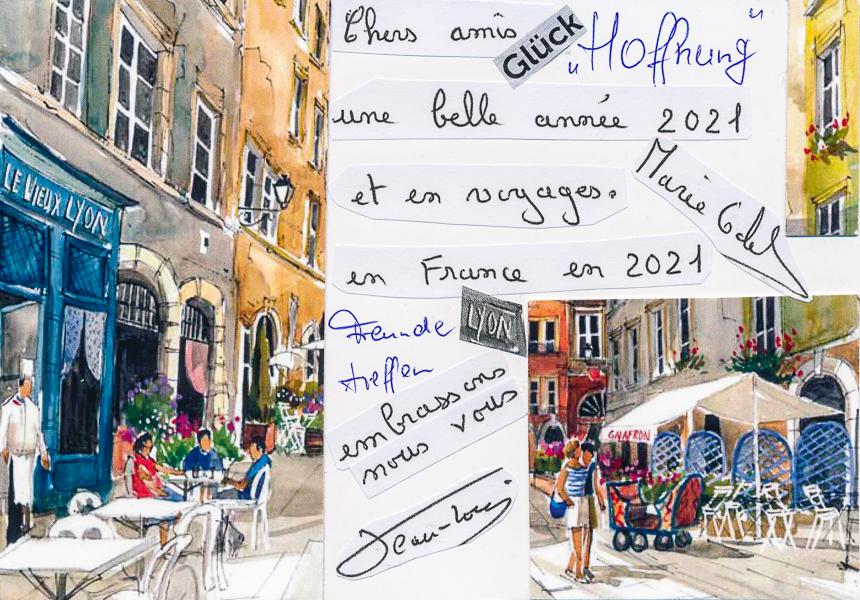 LE VIEUX LYON
Chers amis
Glück
„Hoffnung“
une belle année 2021
et en voyages.
Marie Odel
en France en 2021
Freunde
treffen
LYON
embrassons
nous vous
Jean-Lou
GNAFRON